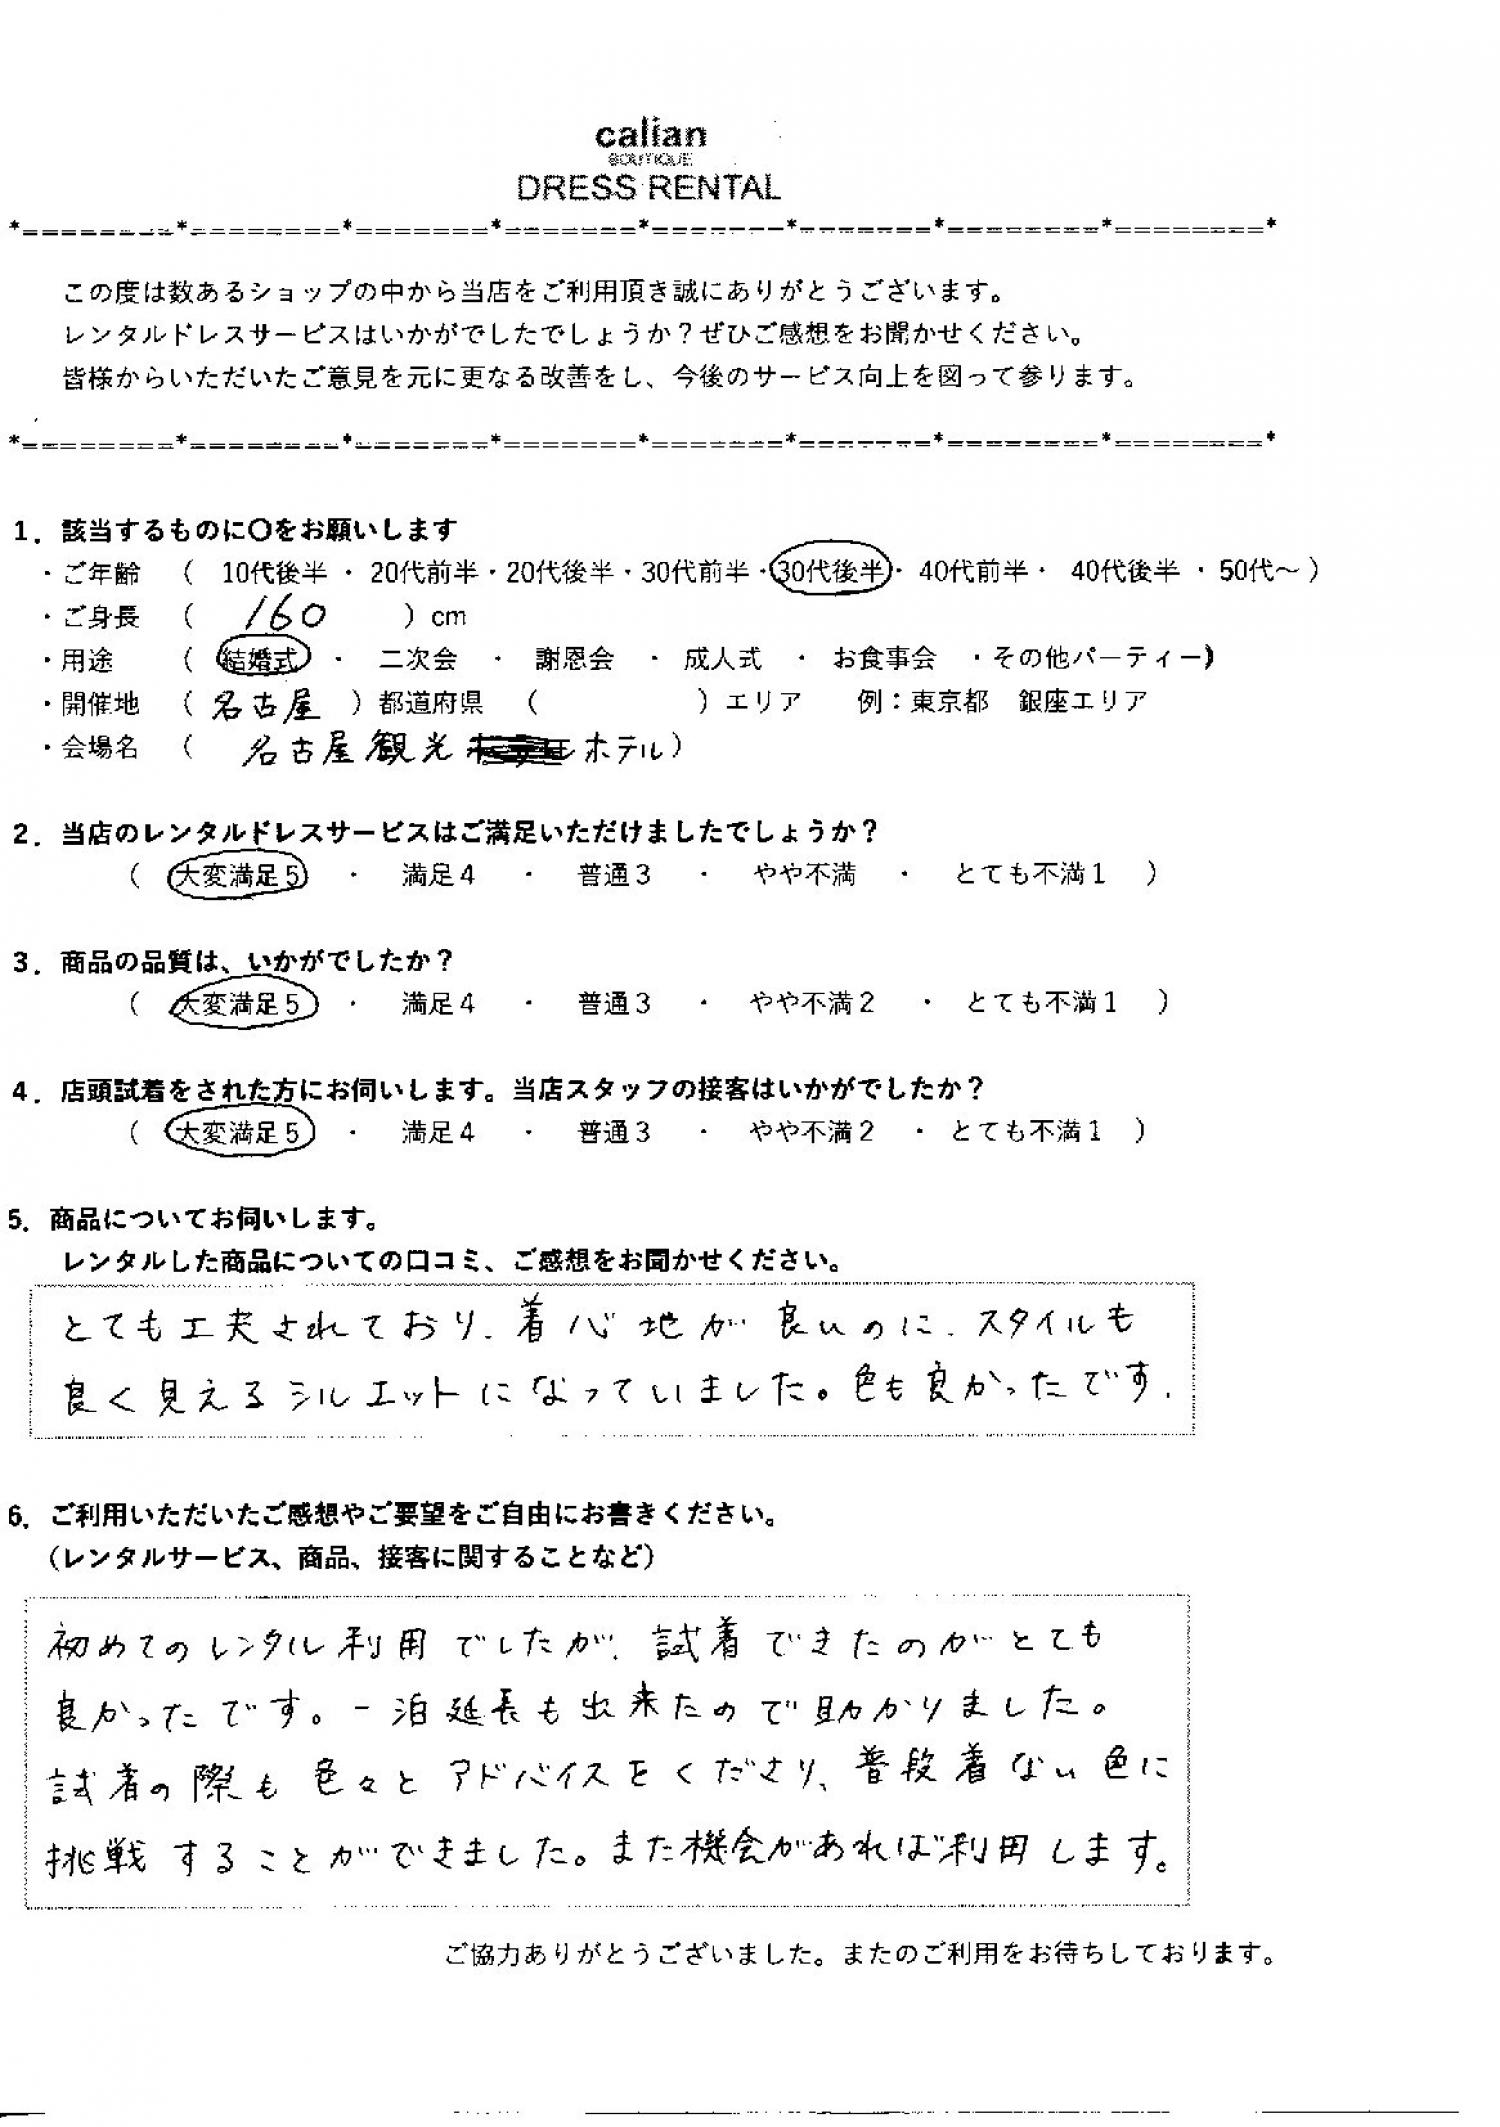 calian
BOUTIQUE
DRESS RENTAL
*========*========*=======*=======*=======*=======*========*========*
この度は数あるショップの中から当店をご利用頂き誠にありがとうございます。
レンタルドレスサービスはいかがでしたでしょうか？ぜひご感想をお聞かせください。
皆様からいただいたご意見を元に更なる改善をし、今後のサービス向上を図って参ります。
*========*========*=======*=======*=======*=======*========*========*
1．該当するものに〇をお願いします
・ご年齢 （ 10代後半 ・ 20代前半・20代後半・30代前半・30代後半・ 40代前半・ 40代後半 ・ 50代～ ）
・ご身長 （ 160 ）cm
・用途 （ 結婚式 ・ 二次会 ・ 謝恩会 ・ 成人式 ・ お食事会 ・その他パーティー）
・開催地 （ 名古屋 ）都道府県 （ ）エリア 例：東京都 銀座エリア
・会場名 （ 名古屋観光 ホテル）
2．当店のレンタルドレスサービスはご満足いただけましたでしょうか？
（ 大変満足5 ・ 満足4 ・ 普通3 ・ やや不満 ・ とても不満1 ）
3．商品の品質は、いかがでしたか？
（ 大変満足5 ・ 満足4 ・ 普通3 ・ やや不満2 ・ とても不満1 ）
4．店頭試着をされた方にお伺いします。当店スタッフの接客はいかがでしたか？
（ 大変満足5 ・ 満足4 ・ 普通3 ・ やや不満2 ・ とても不満1 ）
5．商品についてお伺いします。
レンタルした商品についての口コミ、ご感想をお聞かせください。
とても工夫されており、着心地が良いのに、スタイルも
良く見えるシルエットになっていました。色も良かったです.
6．ご利用いただいたご感想やご要望をご自由にお書きください。
（レンタルサービス、商品、接客に関することなど）
初めてのレンタル利用でしたが、試着できたのがとても
良かったです。一泊延長も出来たので助かりました。
試着の際も色々とアドバイスをくださり、普段着ない色に
挑戦することができました。また機会があれば利用します。
ご協力ありがとうございました。またのご利用をお待ちしております。